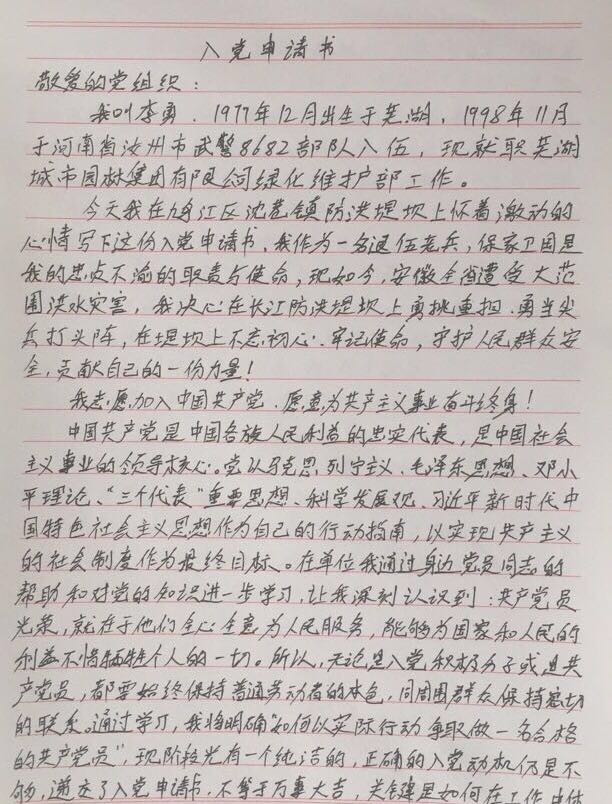 入党申请书
敬爱的党组织：
我叫李勇，1977年12月出生于芜湖，1998年11月
于河南省汝州市武警8682部队入伍，现就职芜湖
城市园林集团有限公司绿化维护部工作。
今天我在鸠江区沈巷镇防洪堤坝上怀着激动的
心情写下这份入党申请书，我作为一名退伍老兵，保家卫国是
我的忠贞不渝的职责与使命，现如今，安徽全省遭受大范
围洪水灾害，我决心在长江防洪堤坝上勇挑重担，勇当尖
兵打头阵，在堤坝上不忘初心、牢记使命，守护人民群众安
全，贡献自己的一份力量！
我志愿加入中国共产党，愿意为共产主义事业奋斗终身！
中国共产党是中国各族人民利益的忠实代表，是中国社会
主义事业的领导核心。党以马克思列宁主义、毛泽东思想、邓小
平理论、“三个代表”重要思想、科学发展观、习近平新时代中
国特色社会主义思想作为自己的行动指南，以实现共产主义
的社会制度作为最终目标。在单位我通过身边党员同志的
帮助和对党的知识进一步学习，让我深刻认识到：共产党员
光荣，就在于他们全心全意为人民服务，能够为国家和人民的
利益不惜牺牲个人的一切。所以，无论是入党积极分子或是共
产党员，都要始终保持普通劳动者的本色，同周围群众保持密切
的联系。通过学习，我将明确“如何以实际行动争取做一名合格
的共产党员”，现阶段光有一个纯洁的，正确的入党动机仍是不
够，递交了入党申请书，不等于万事大吉，关键是如何在工作中体